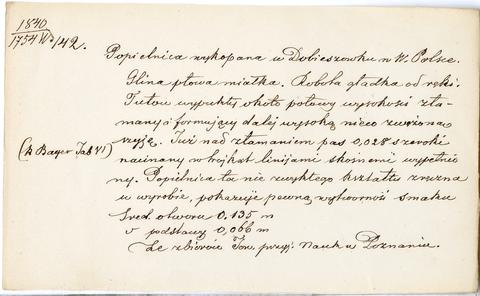 1840
1754 W3/42.
Popielnica wykopana w Dobieszewku w W. Polsce.
Glina płowa miałka. Robota gładka od ręki.
Tułow wypukły około połowy wysokości zła-
many i formujący dalej wysoką nieco zwężoną
szyję. Tuż nad złamaniem pas 0,028 szeroki
(k Bayer Tab VI) nacinany w trójkąt linijami skośnemi wypełnio
ny. Popielnica ta nie zwykłego kształtu zręczna
w wyrobie, pokazuje pewną wytworność smaku
Śred. otworu 0,135 m
" podstawy 0,066 m
Ze zbiorów Tow. przyj. Nauk w Poznaniu.